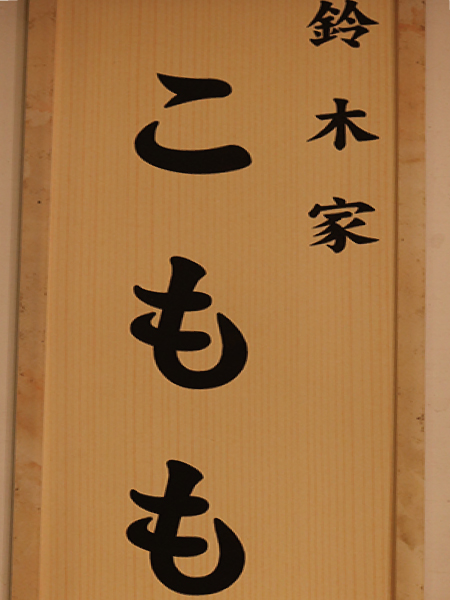 鈴木家
こもも